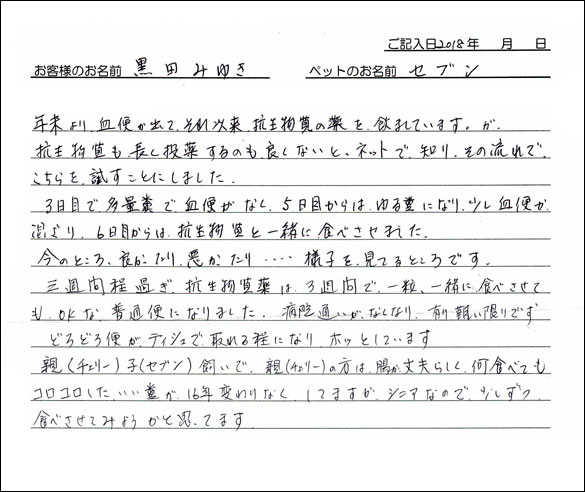 ご記入日2018年　月　日
お客様のお名前 黒田みゆき　ペットのお名前 セブン
年末より、血便が出て、それ以来、抗生物質の薬を、飲ませています。が、
抗生物質も長く投薬するのも良くないと、ネットで、知り、その流れで、
こちらを、試すことにしました。
3日目で多量糞で血便がなく、5日目からは、ゆる糞になり、少し血便が、
混ざり、6日目からは、抗生物質と一緒に食べさせました。
今のところ、良かったり、悪かったり・・・・様子を見てるところです。
三週間程過ぎ、抗生物質薬は、3週間で、一粒、一緒に、食べさせて
も、OKな、普通便になりました。病院通いが、なくなり、有り難い限りです
どろどろ便が、ティシュで、取れる程になり、ホッとしています
親(チェリー)子(セブン)飼いで、親(チェリー)の方は、腸が丈夫らしく、何食べても
コロコロした、いい糞が、16年変わりなく、してますが、シニアなので、少しずつ
食べさせてみようかと思ってます。